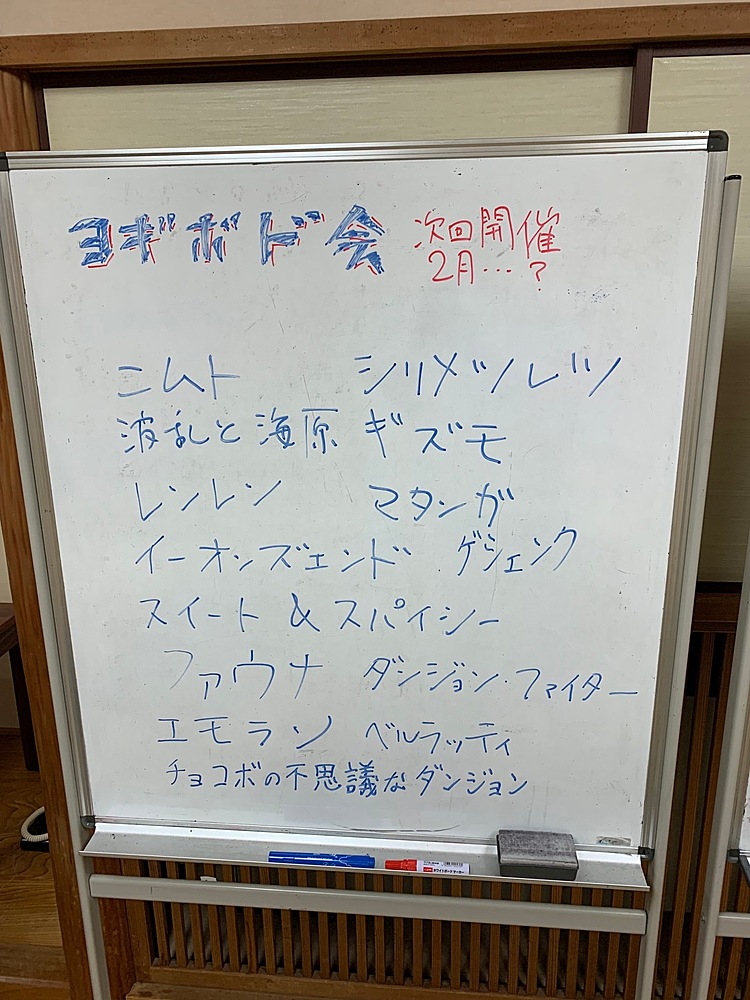 ヨギボド会 次回開催
2月…?
ニムト シリメツレツ
波乱と海原 ギズモ
レンレン マタンガ
イーオンズエンド ゲシェンク
スイート & スパイシー
ファウナ ダンジョン・ファイター
エモラン ベルラッティ
チョコボの不思議なダンジョン